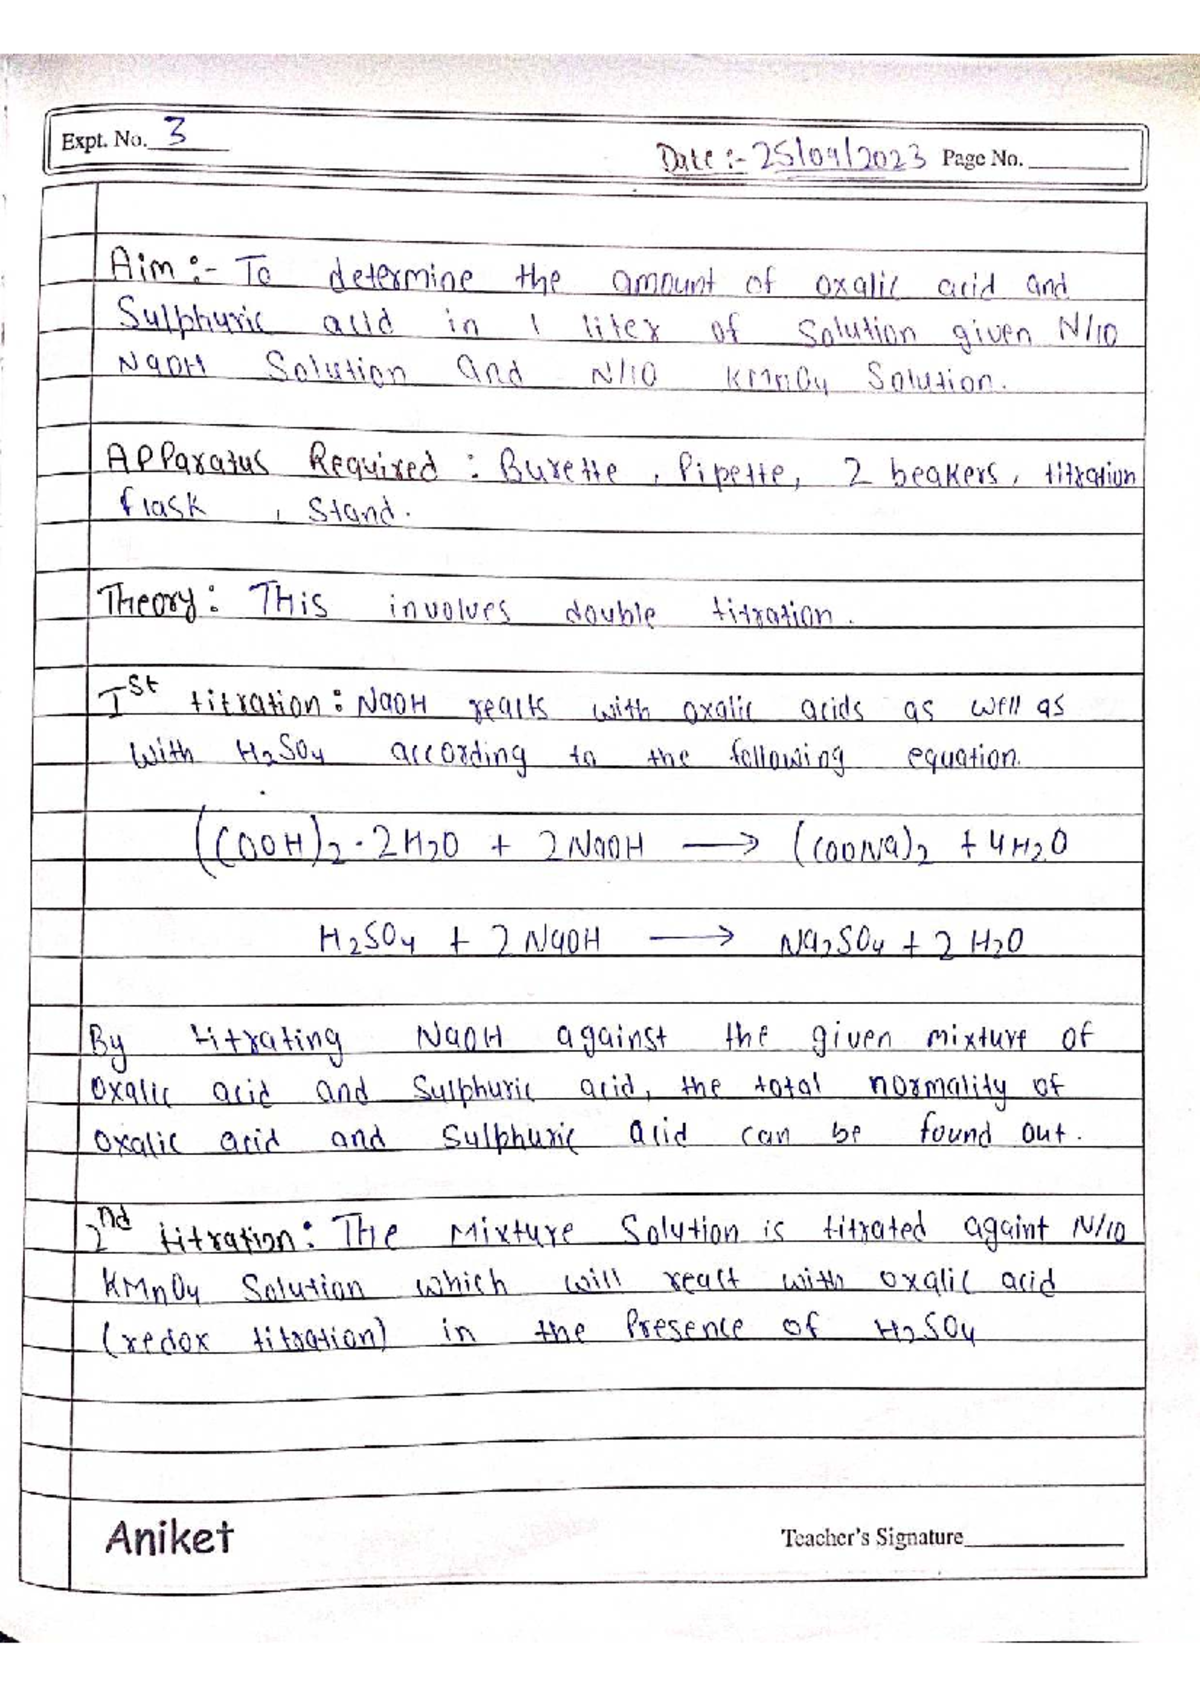 Expt. No. 3
Date :- 25/04/2023 Page No.
Aim :- To determine the amount of oxalic acid and
Sulphuric acid in 1 liter of Solution given N/10
NaOH Solution and N/10 KMnO4 Solution.
Apparatus Required : Burette, Pipette, 2 beakers, titration
flask, Stand.
Theory : This involves double titration.
Ist titration : NaOH reacts with oxalic acids as well as
with H2SO4 according to the following equation.
(COOH)2·2H2O + 2NaOH ⟶ (COONa)2 + 4H2O
H2SO4 + 2NaOH ⟶ Na2SO4 + 2H2O
By titrating NaOH against the given mixture of
oxalic acid and Sulphuric acid, the total normality of
oxalic acid and Sulphuric acid can be found out.
2nd titration : The Mixture Solution is titrated againt N/10
KMnO4 Solution which will react with oxalic acid
(redox titration) in the Presence of H2SO4
Aniket
Teacher's Signature